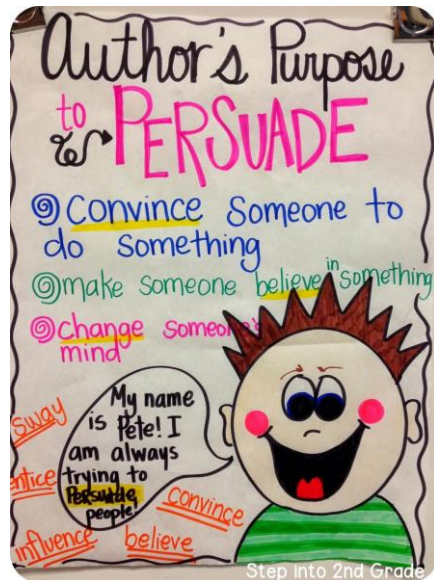 Author's Purpose
to PERSUADE
convince someone to
do something
make someone believe in something
change someone's
mind
My name
is Pete! I
am always
trying to
Persuade
people!
sway
entice
convince
influence
believe
Step Into 2nd Grade